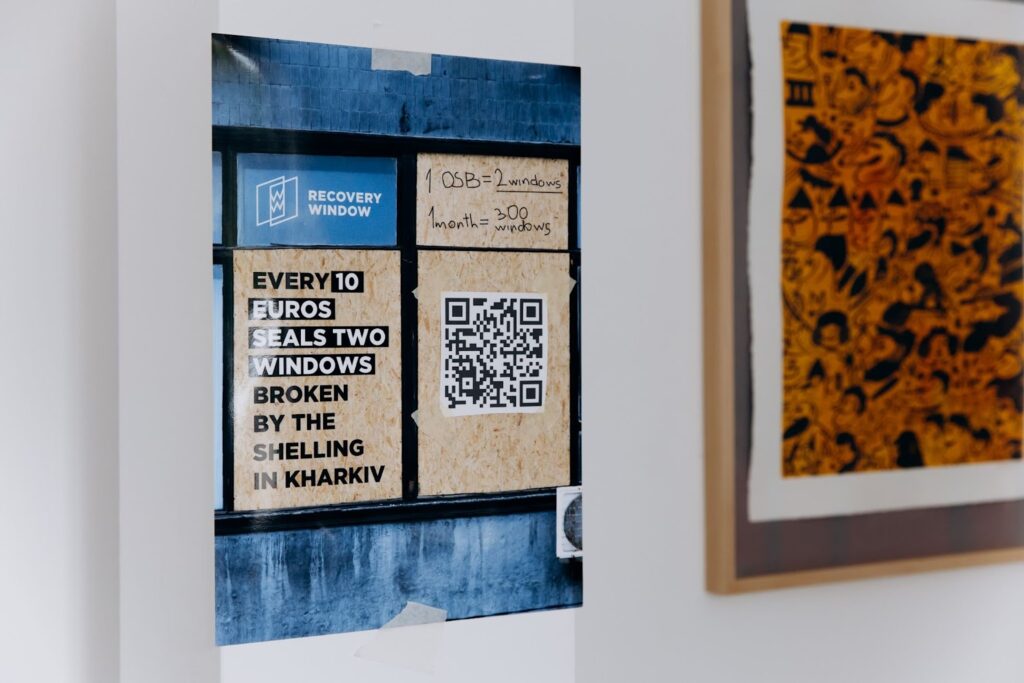 RECOVERY
WINDOW
1 OSB = 2 windows
1 month = 300
windows
EVERY 10
EUROS
SEALS TWO
WINDOWS
BROKEN
BY THE
SHELLING
IN KHARKIV